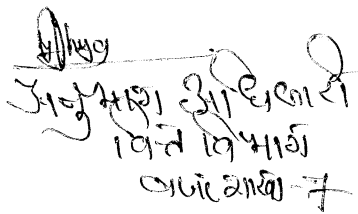 अनुभाग अधिकारी
वित्त विभाग
बजट शाखा - 7